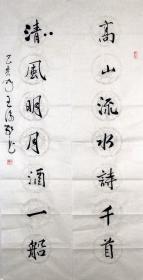 高山流水詩千首
清風明月酒一船